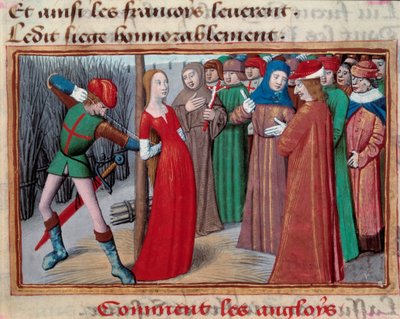 Et ainsi les francoys leuerent
Ledit siege honnorablement.
Comment les anglois